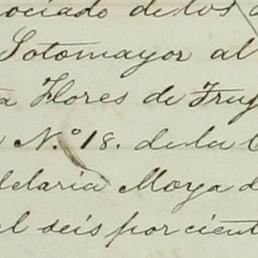 ociado de los
Sotomayor al
a Flores de Trug
N.º 18. de la C
delaria Moya d
el seis por cient